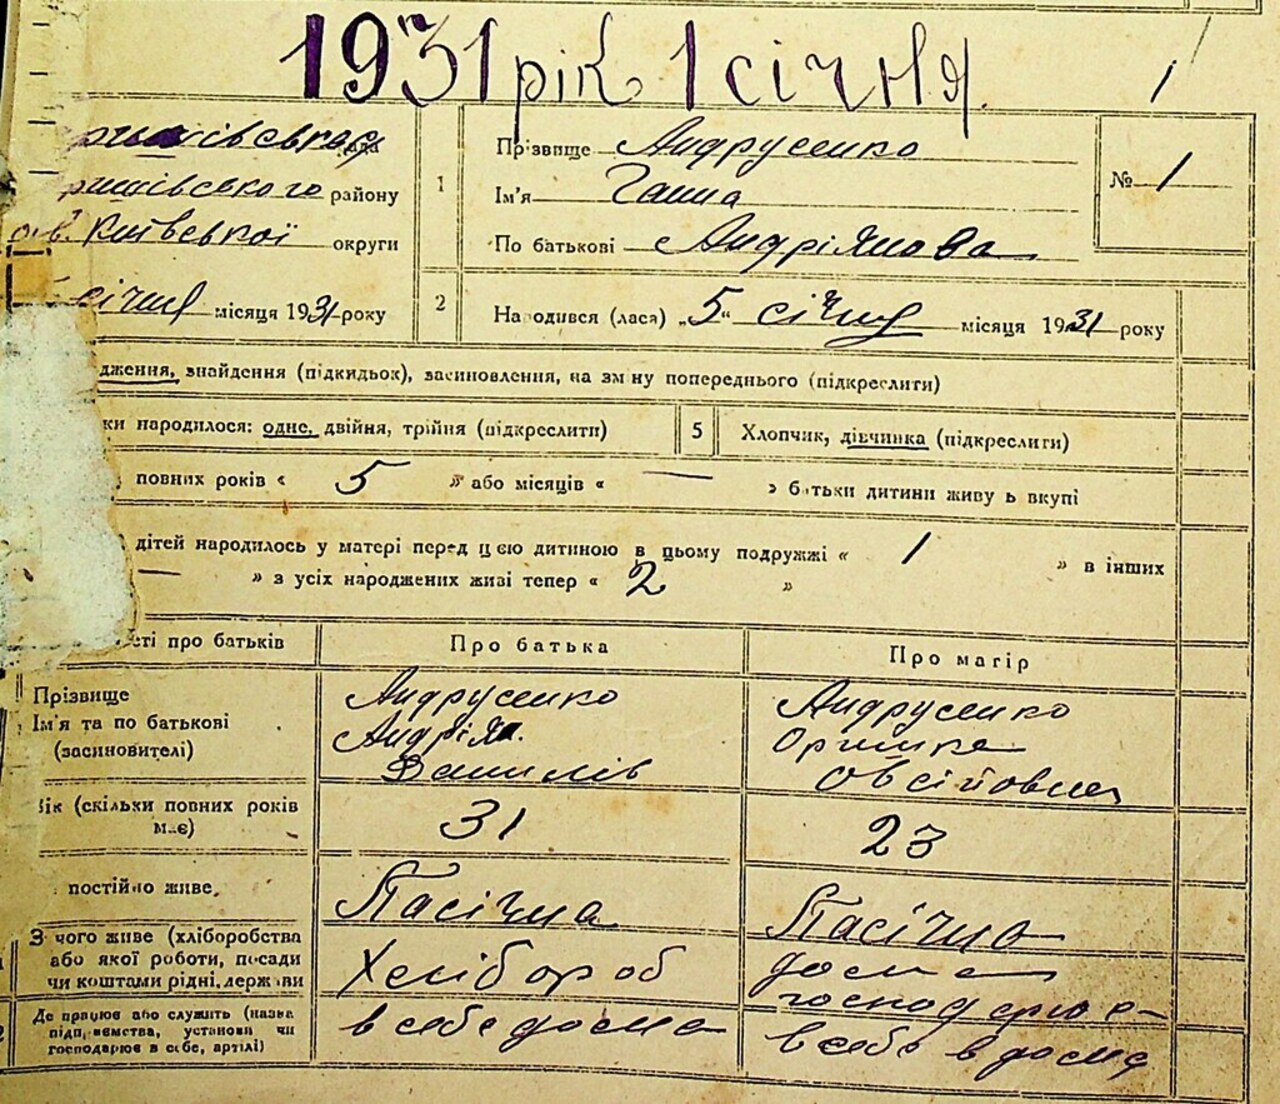 1931 рік 1 січня
1
рада
району
Київської округи
січня місяця 1931 року
1
Прізвище Андрусенко
Ім'я Ганна
По батькові Андріянова
№ 1
2
Народився (лася) „5“ січня місяця 1931 року
дження, знайдення (підкидьок), засиновлення, на зміну попереднього (підкреслити)
ки народилося: одне, двійня, трійня (підкреслити)
5
Хлопчик, дівчинка (підкреслити)
повних років « 5 » або місяців « — » батьки дитини живуть вкупі
дітей народилось у матері перед цією дитиною в цьому подружжі « 1 » в інших
— » з усіх народжених живі тепер « 2 »
сті про батьків
Про батька
Про матір
Прізвище
Ім'я та по батькові
(засиновителі)
Андрусенко
Андріян
Данилів
Андрусенко
Оришка
Овсійовна
Вік (скільки повних років
має)
31
23
постійно живе
Пасічна
Пасічна
З чого живе (хліборобства
або якої роботи, посади
чи коштами рідні, держави
Хлібороб
дома
господарює
Де працює або служить (назва
підприємства, установи чи
господарює в себе, артілі)
в себе дома
в себе в дома